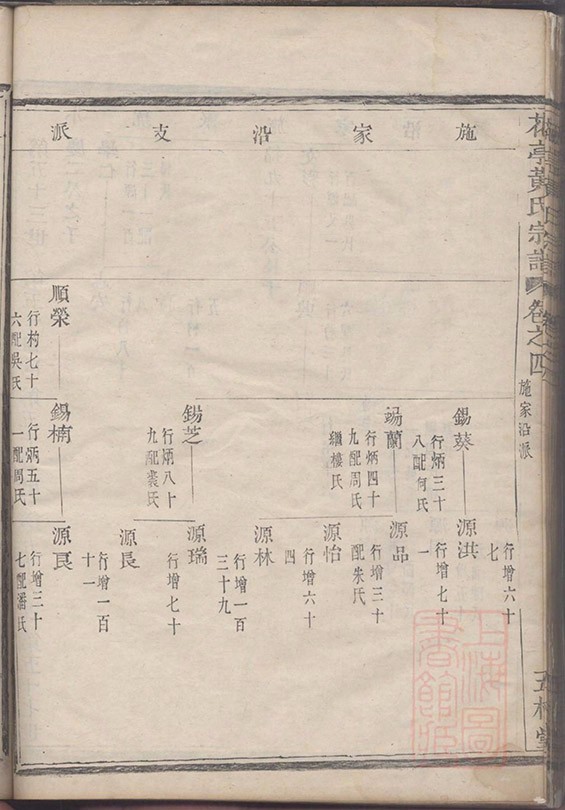 黃氏宗譜
卷之四
施家沿派
五桂堂
施家沿支派
行增六十
七
錫葵
行炳三十
八配何氏
源洪
行增七十
一
錫蘭
行炳四十
九配周氏
繼樓氏
源品
行增三十
配朱氏
源怡
行增六十
四
源林
行增一百
三十九
錫芝
行炳八十
九配裘氏
源瑞
行增七十
源長
行增一百
十一
順榮
行材七十
六配吳氏
錫楠
行炳五十
一配周氏
源良
行增三十
七配潘氏
上海圖書館藏